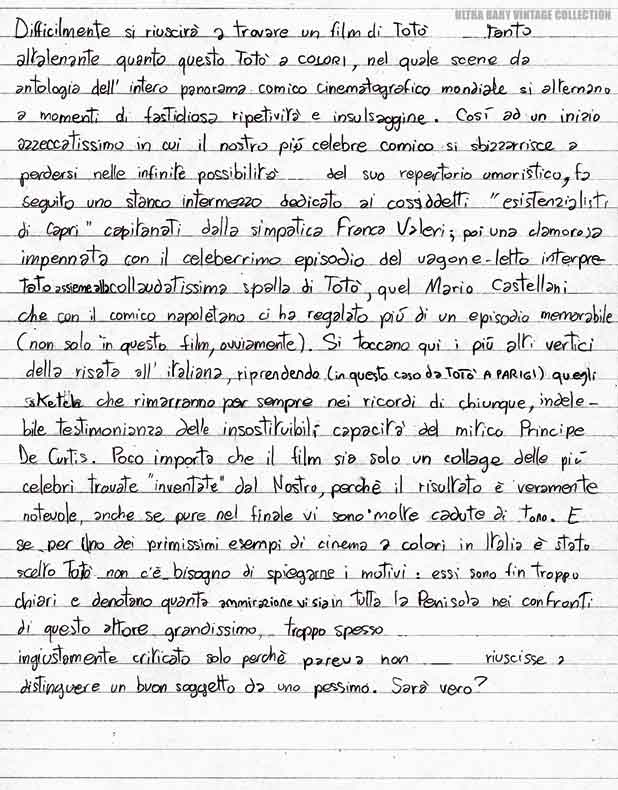 ULTRA BABY VINTAGE COLLECTION
Difficilmente si riuscirà a trovare un film di Totò tanto
altalenante quanto questo TOTÒ A COLORI, nel quale scene da
antologia dell'intero panorama comico cinematografico mondiale si alternano
a momenti di fastidiosa ripetività e insulsaggine. Così ad un inizio
azzeccatissimo in cui il nostro più celebre comico si sbizzarrisce a
perdersi nelle infinite possibilità del suo repertorio umoristico, fa
seguito uno stanco intermezzo dedicato ai cosiddetti "esistenzialisti
di Capri" capitanati dalla simpatica Franca Valeri; poi una clamorosa
impennata con il celeberrimo episodio del vagone-letto interpre
tato assieme alla collaudatissima spalla di Totò, quel Mario Castellani
che con il comico napoletano ci ha regalato più di un episodio memorabile
(non solo in questo film, ovviamente). Si toccano qui i più alti vertici
della risata all'italiana, riprendendo (in questo caso da TOTÒ A PARIGI) quegli
sketch che rimarranno per sempre nei ricordi di chiunque, indele-
bile testimonianza delle insostituibili capacità del mitico Principe
De Curtis. Poco importa che il film sia solo un collage delle più
celebri trovate "inventate" dal Nostro, perchè il risultato è veramente
notevole, anche se pure nel finale vi sono molte cadute di tono. E
se per uno dei primissimi esempi di cinema a colori in Italia è stato
scelto Totò non c'è bisogno di spiegarne i motivi: essi sono fin troppo
chiari e denotano quanta ammirazione vi sia in tutta la Penisola nei confronti
di questo attore grandissimo, troppo spesso
ingiustamente criticato solo perchè pareva non riuscisse a
distinguere un buon soggetto da uno pessimo. Sarà vero?